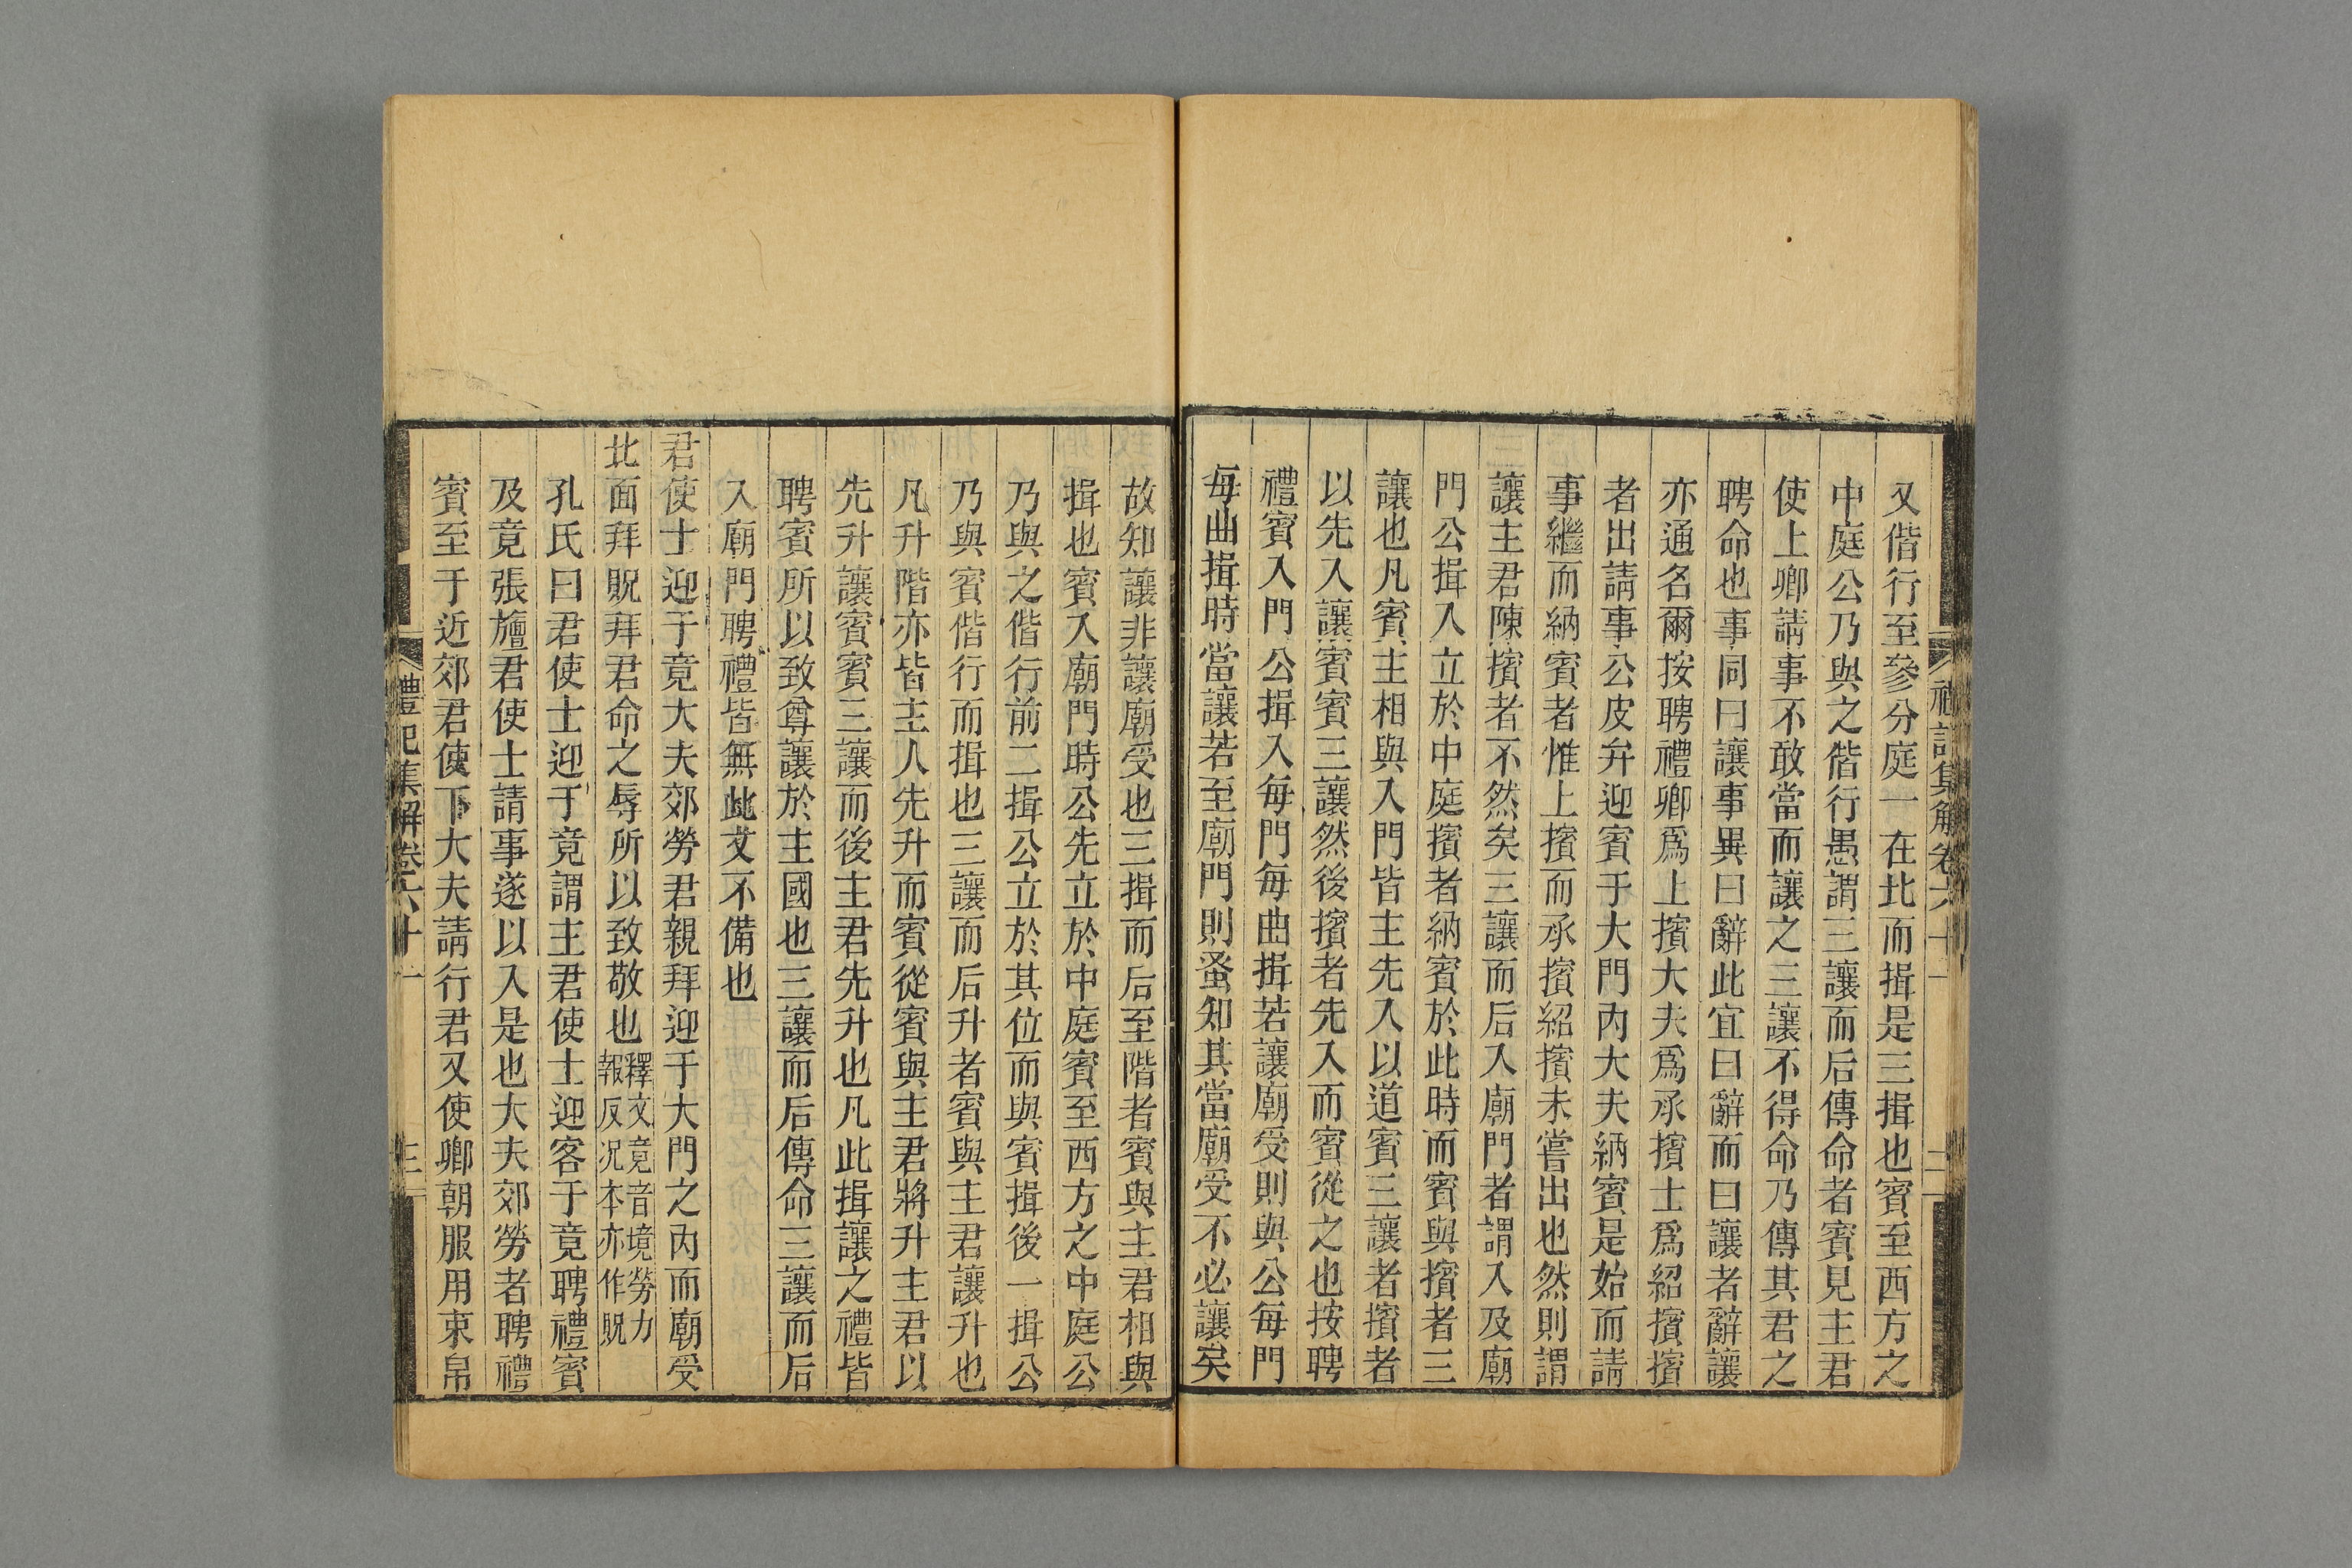 又偕行至參分庭一在北而揖是三揖也賓至西方之
中庭公乃與之偕行愚謂三讓而后傳命者賓見主君
使上卿請事不敢當而讓之三讓不得命乃傳其君之
聘命也事同曰讓事異曰辭此宜曰辭而曰讓者辭讓
亦通名爾按聘禮卿爲上擯大夫爲承擯士爲紹擯擯
者出請事公皮弁迎賓于大門內大夫納賓是始而請
事繼而納賓者惟上擯而承擯紹擯未嘗出也然則謂
讓主君陳擯者不然矣三讓而后入廟門者謂入及廟
門公揖入立於中庭擯者納賓於此時而賓與擯者三
讓也凡賓主相與入門皆主先入以道賓三讓者擯者
以先入讓賓賓三讓然後擯者先入而賓從之也按聘
禮賓入門公揖入每門每曲揖若讓廟受則與公每門
每曲揖時當讓若至廟門則蚤知其當廟受不必讓矣
故知讓非讓廟受也三揖而后至階者賓與主君相與
揖也賓入廟門時公先立於中庭賓至西方之中庭公
乃與之偕行前二揖公立於其位而與賓揖後一揖公
乃與賓偕行而揖也三讓而后升者賓與主君讓升也
凡升階亦皆主人先升而賓從賓與主君將升主君以
先升讓賓賓三讓而後主君先升也凡此揖讓之禮皆
聘賓所以致尊讓於主國也三讓而后傳命三讓而后
入廟門聘禮皆無此文不備也
君使士迎于竟大夫郊勞君親拜迎于大門之內而廟受
北面拜貺拜君命之辱所以致敬也釋文竟音境勞力報反况本亦作貺
孔氏曰君使士迎于竟謂主君使士迎客于竟聘禮賓
及竟張旜君使士請事遂以入是也大夫郊勞者聘禮
賓至于近郊君使下大夫請行君又使卿朝服用束帛
禮記集解卷六十一
三